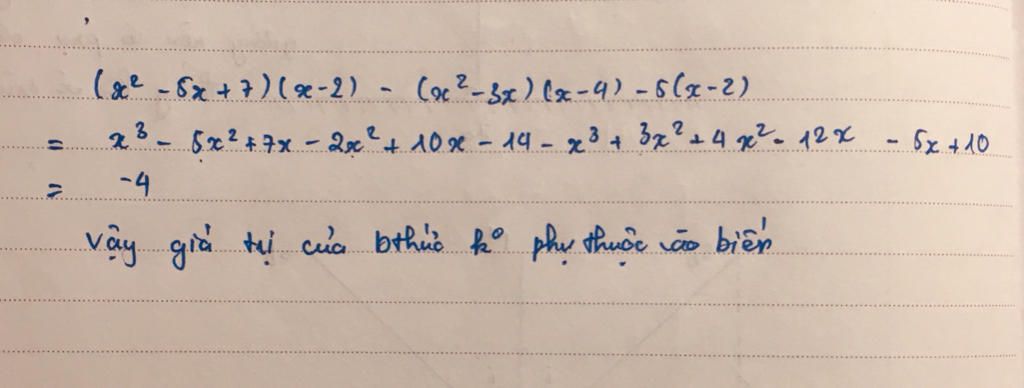 (x² - 5x + 7)(x - 2) - (x² - 3x)(x - 4) - 5(x - 2)
= x³ - 5x² + 7x - 2x² + 10x - 14 - x³ + 3x² + 4x² - 12x - 5x + 10
= -4
Vậy giá trị của bthức k° phụ thuộc vào biến